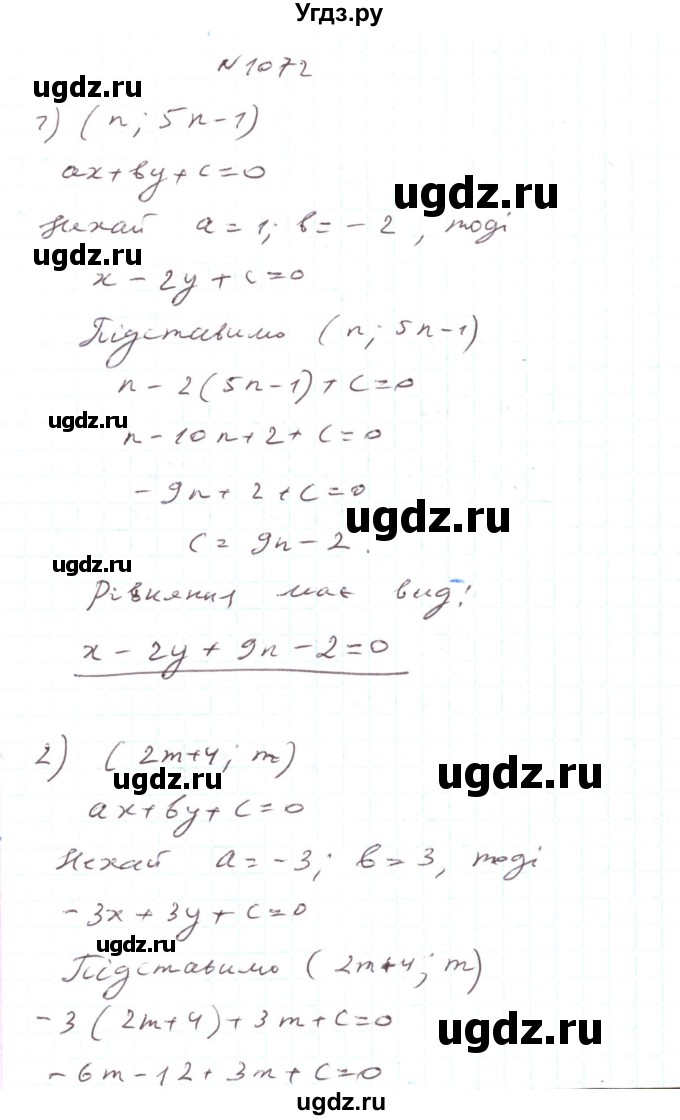 Угдз.ру
№1072
ugdz.ru
1) (n; 5n-1)
ax+by+c=0
ugdz.ru
Нехай a=1; b=-2, тоді
ugdz.ru
x-2y+c=0
Підставимо (n; 5n-1)
n-2(5n-1)+c=0
ugdz.ru
n-10n+2+c=0
-9n+2+c=0
ugdz.ru
c=9n-2.
ugdz.ru
Рівняння має вид:
x-2y+9n-2=0
2) (2m+4; m)
ugdz.ru
ugdz.ru
ax+by+c=0
Нехай a=-3; b=3, тоді
-3x+3y+c=0
ugdz.ru
Підставимо (2m+4; m)
-3(2m+4)+3m+c=0
ugdz.ru
-6m-12+3m+c=0
ugdz.ru